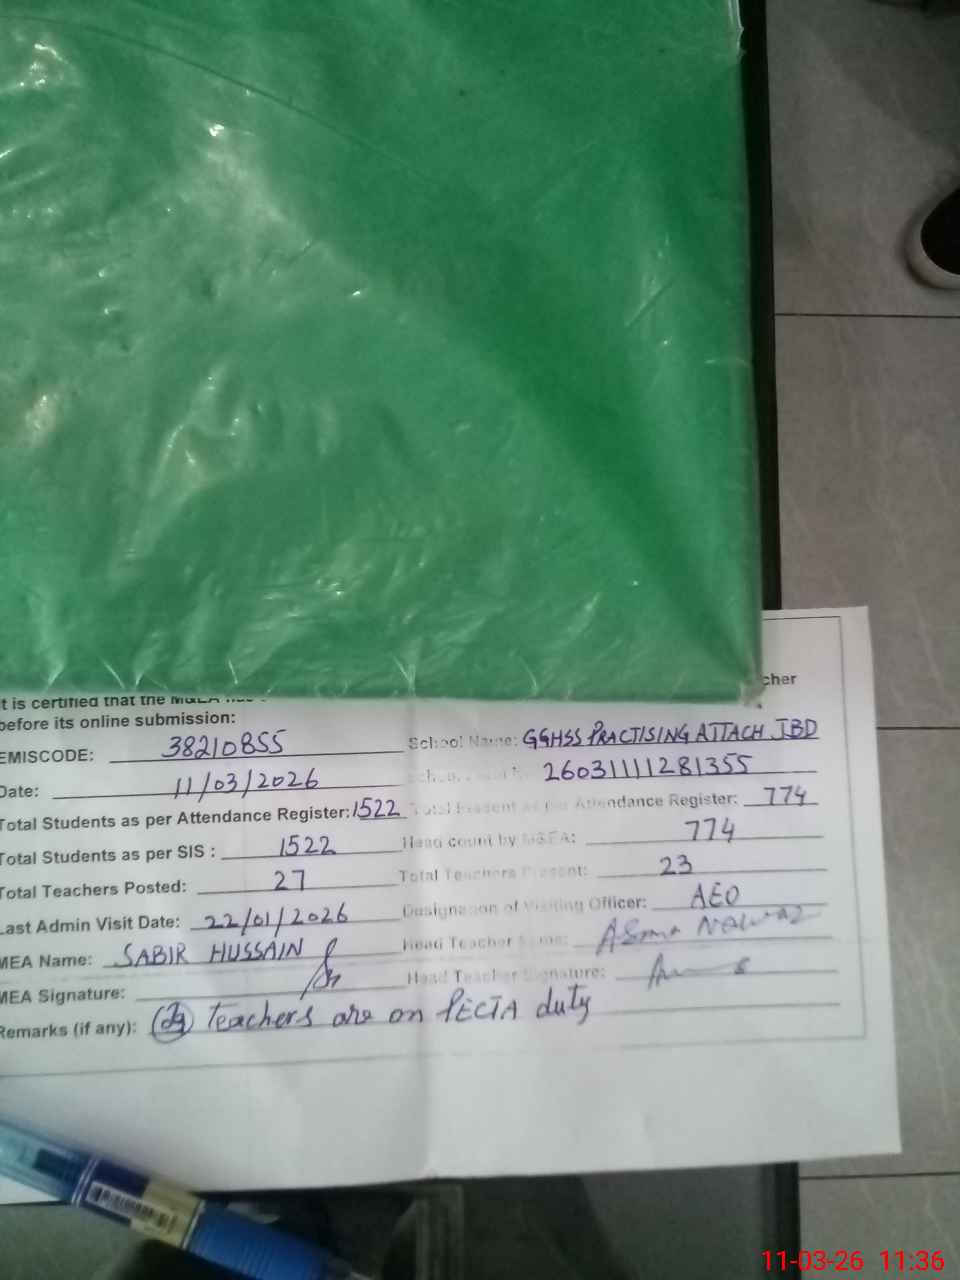 It is certified that the M&EA has
cher
before its online submission:
EMISCODE: 38210855 School Name: GGHSS PRACTISING ATTACH JBD
Date: 11/03/2026 26031111281355
Total Students as per Attendance Register: 1522 Total Present as per Attendance Register: 774
Total Students as per SIS : 1522 Head count by M&EA: 774
Total Teachers Posted: 27 Total Teachers Present: 23
Last Admin Visit Date: 22/01/2026 Designation of Visiting Officer: AEO
MEA Name: SABIR HUSSAIN Head Teacher Name: Asma Nawaz
MEA Signature: Head Teacher Signature:
Remarks (if any): teachers are on PECTA duty
11-03-26 11:36